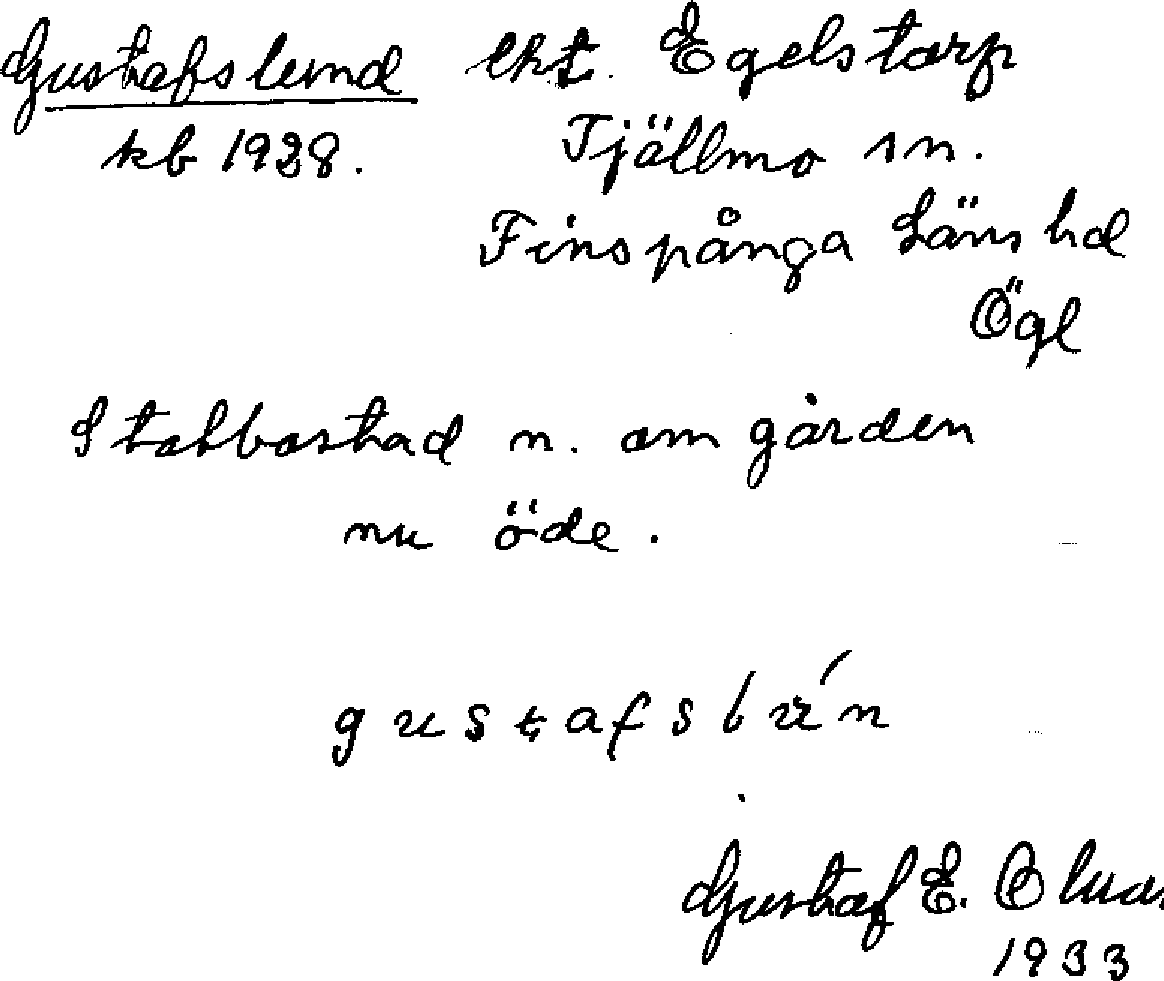 Gustafslund lht. Egelstorp
kb 1928. Tjällmo sn.
Finspånga Läns hd
Ögl
Statbostad n. om gården
nu öde.
gustafslún
Gustaf E.
1933